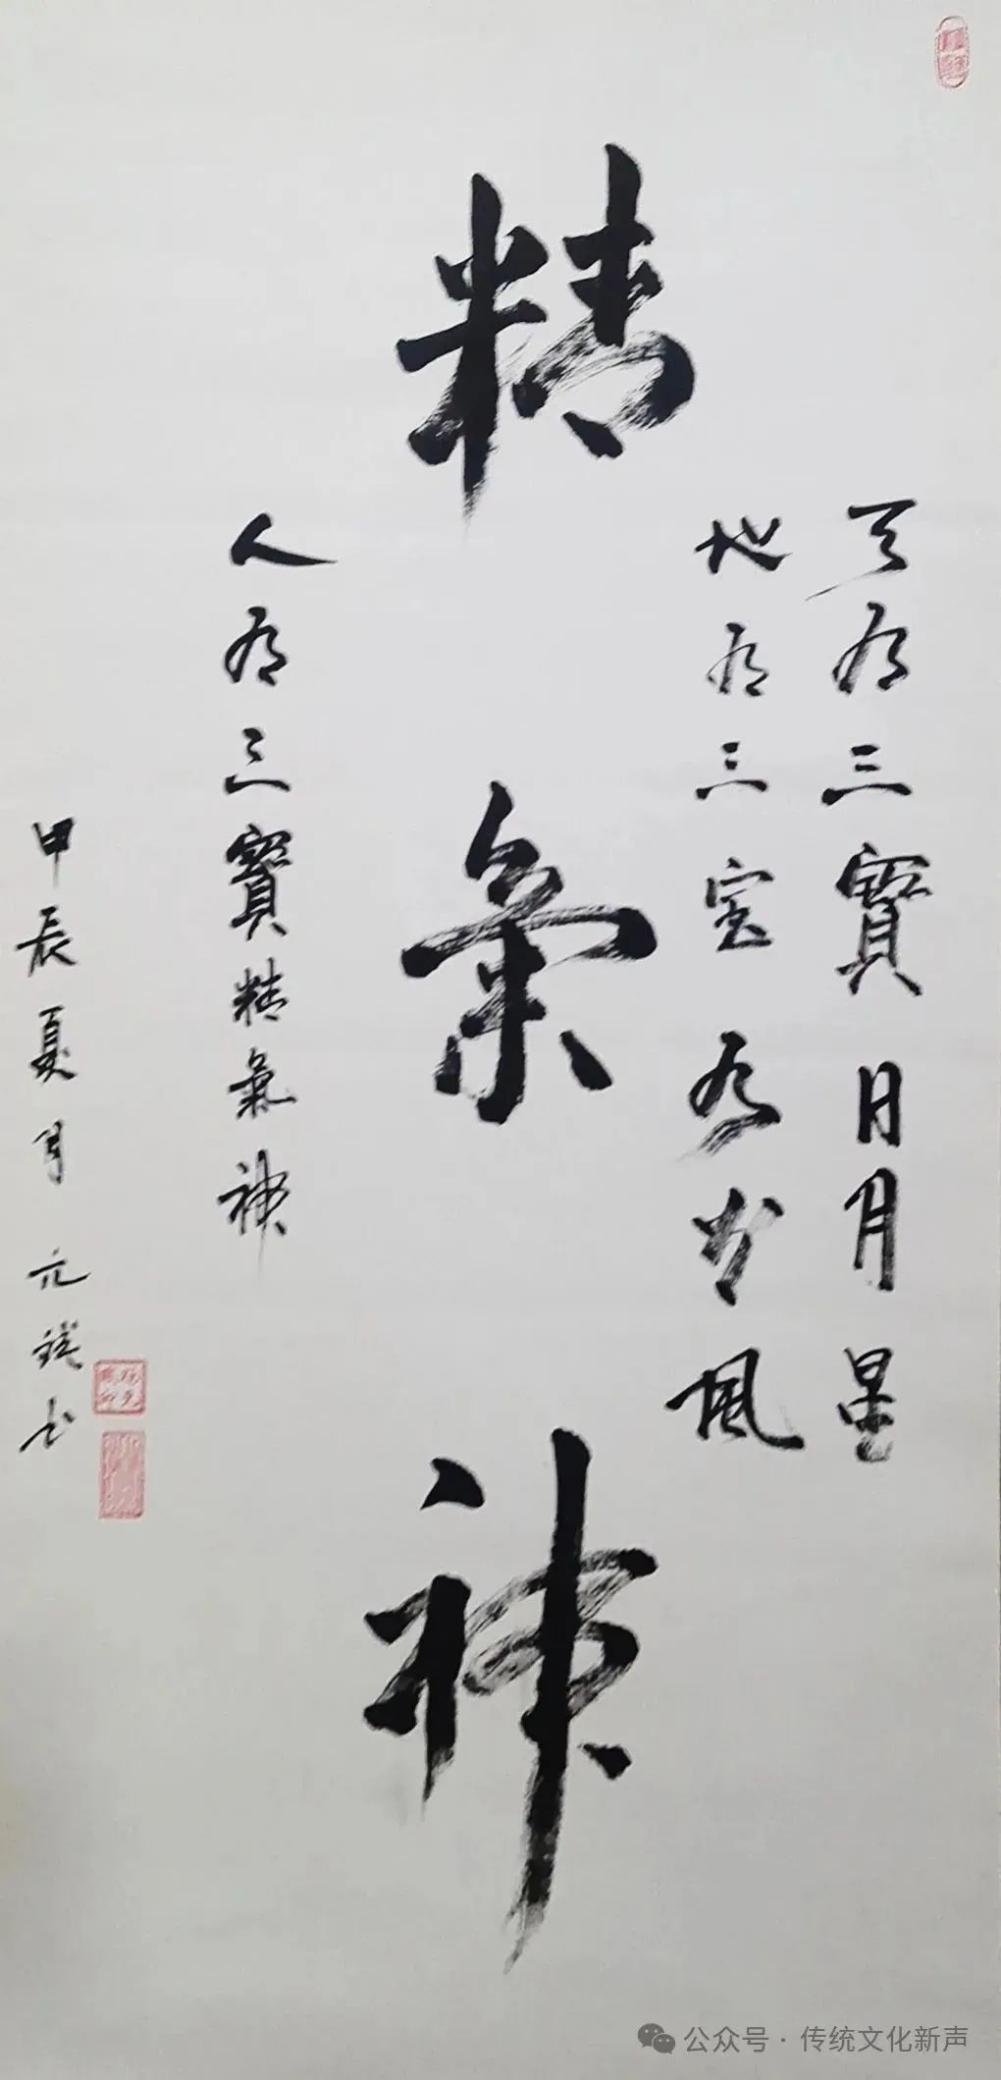 天有三寶日月星
地有三宝水火風
精氣神
人有三寶精氣神
甲辰夏月书
公众号·传统文化新声